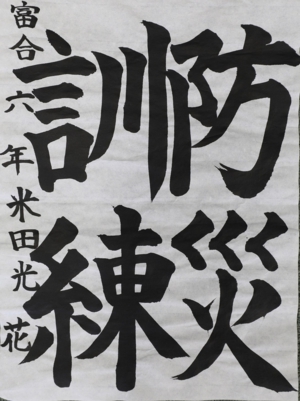 防災
訓練
富合六年米田光花